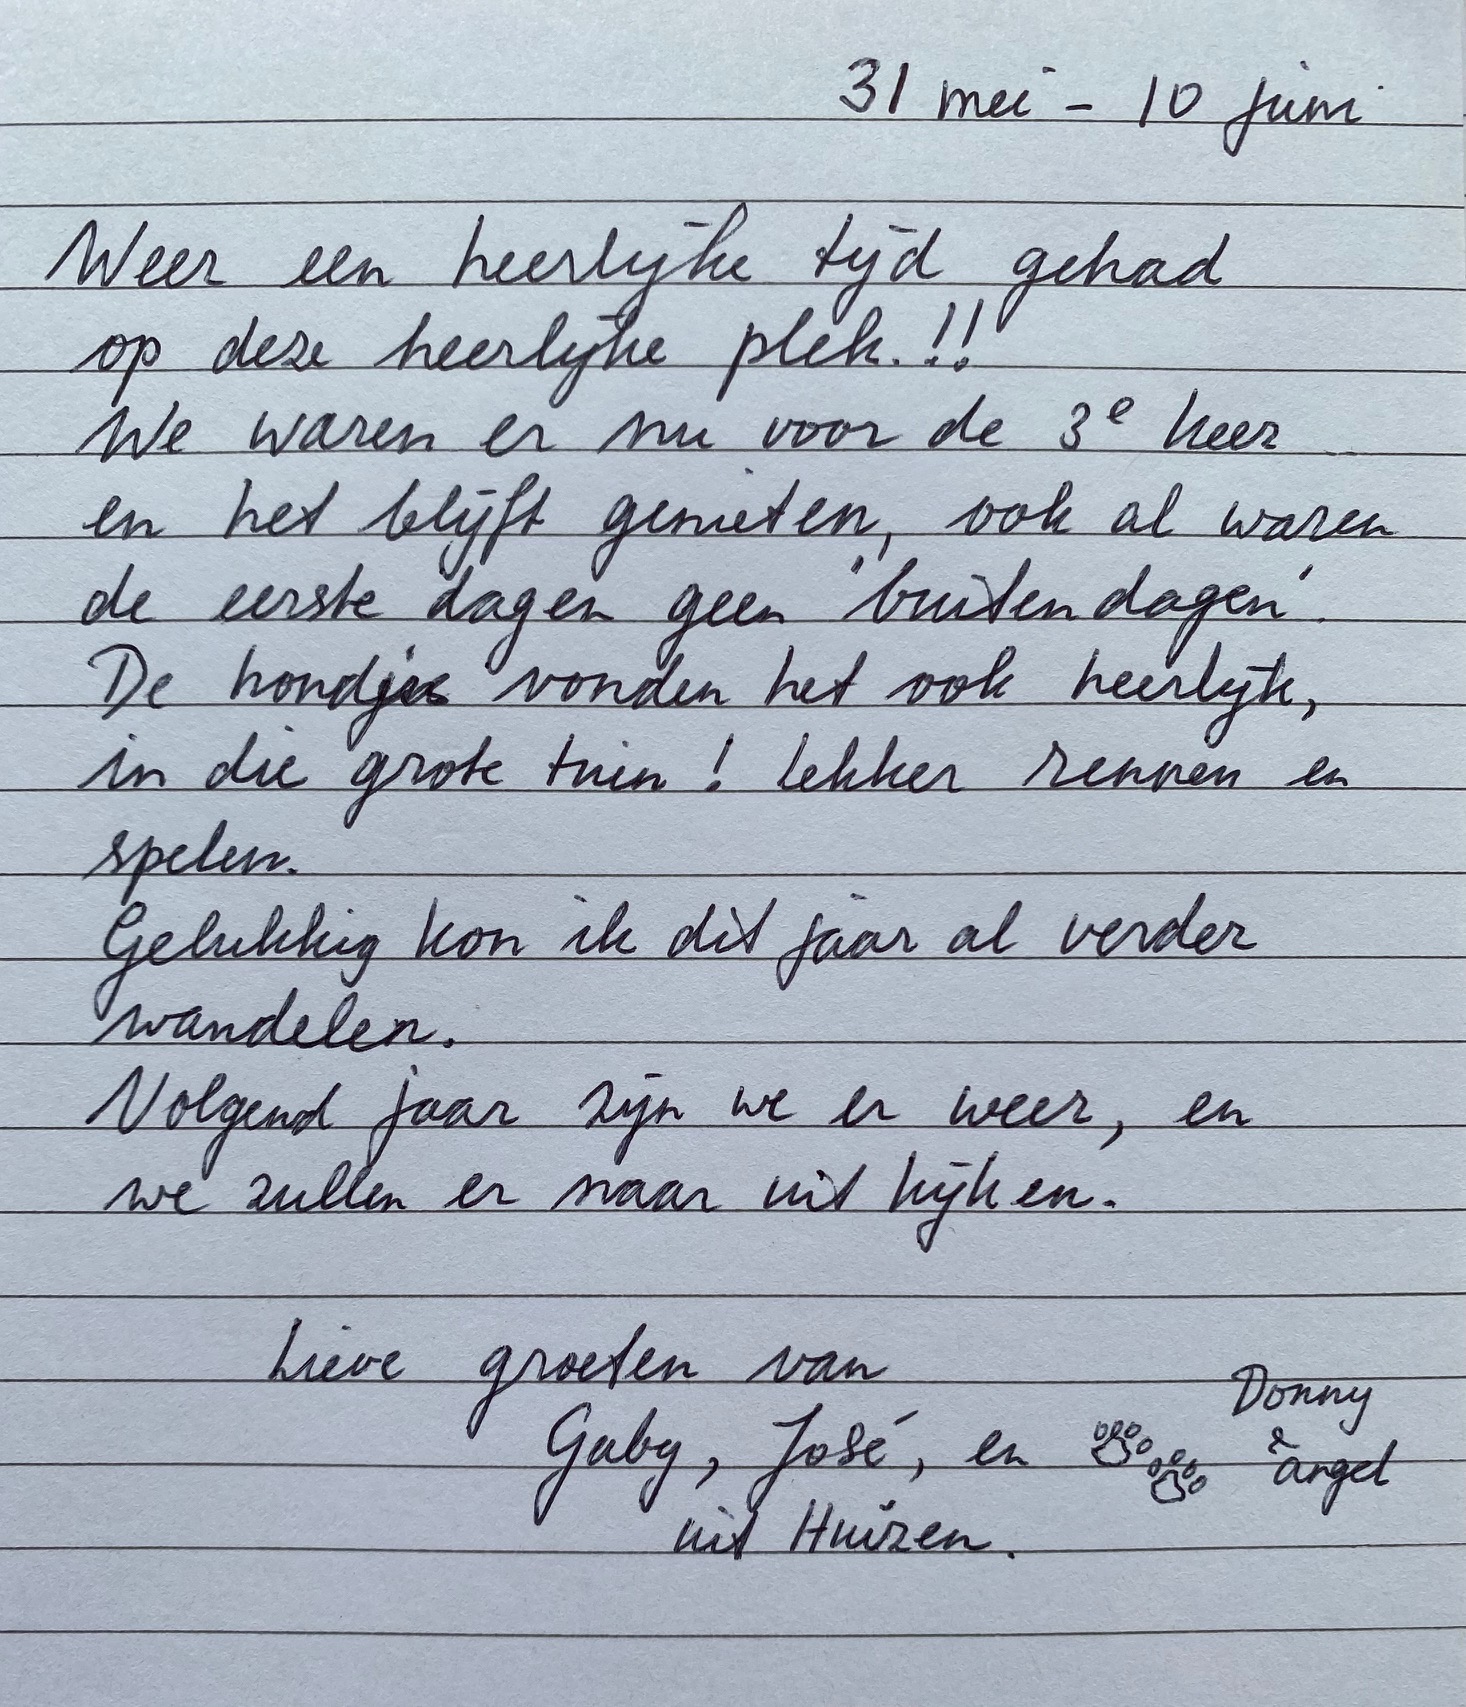 31 mei - 10 juni
Weer een heerlijke tijd gehad
op deze heerlijke plek.!!
We waren er nu voor de 3e keer
en het blijft genieten, ook al waren
de eerste dagen geen 'buitendagen'.
De hondjes vonden het ook heerlijk,
in die grote tuin! Lekker rennen en
spelen.
Gelukkig kon ik dit jaar al verder
wandelen.
Volgend jaar zijn we er weer, en
we zullen er naar uit kijken.
Lieve groeten van
Gaby, José, en Donny
& Angel
uit Huizen.